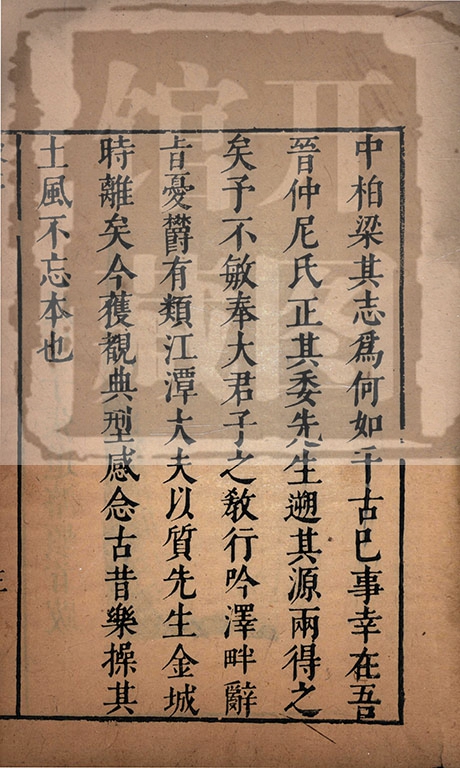 中柏梁其志爲何如千古巳事幸在吾
晉仲尼氏正其委先生遡其源兩得之
矣予不敏奉大君子之教行吟澤畔辭
旨憂欝有類江潭大夫以質先生金城
時離矣今獲觀典型感念古昔樂操其
土風不忘本也
开图
馆藏